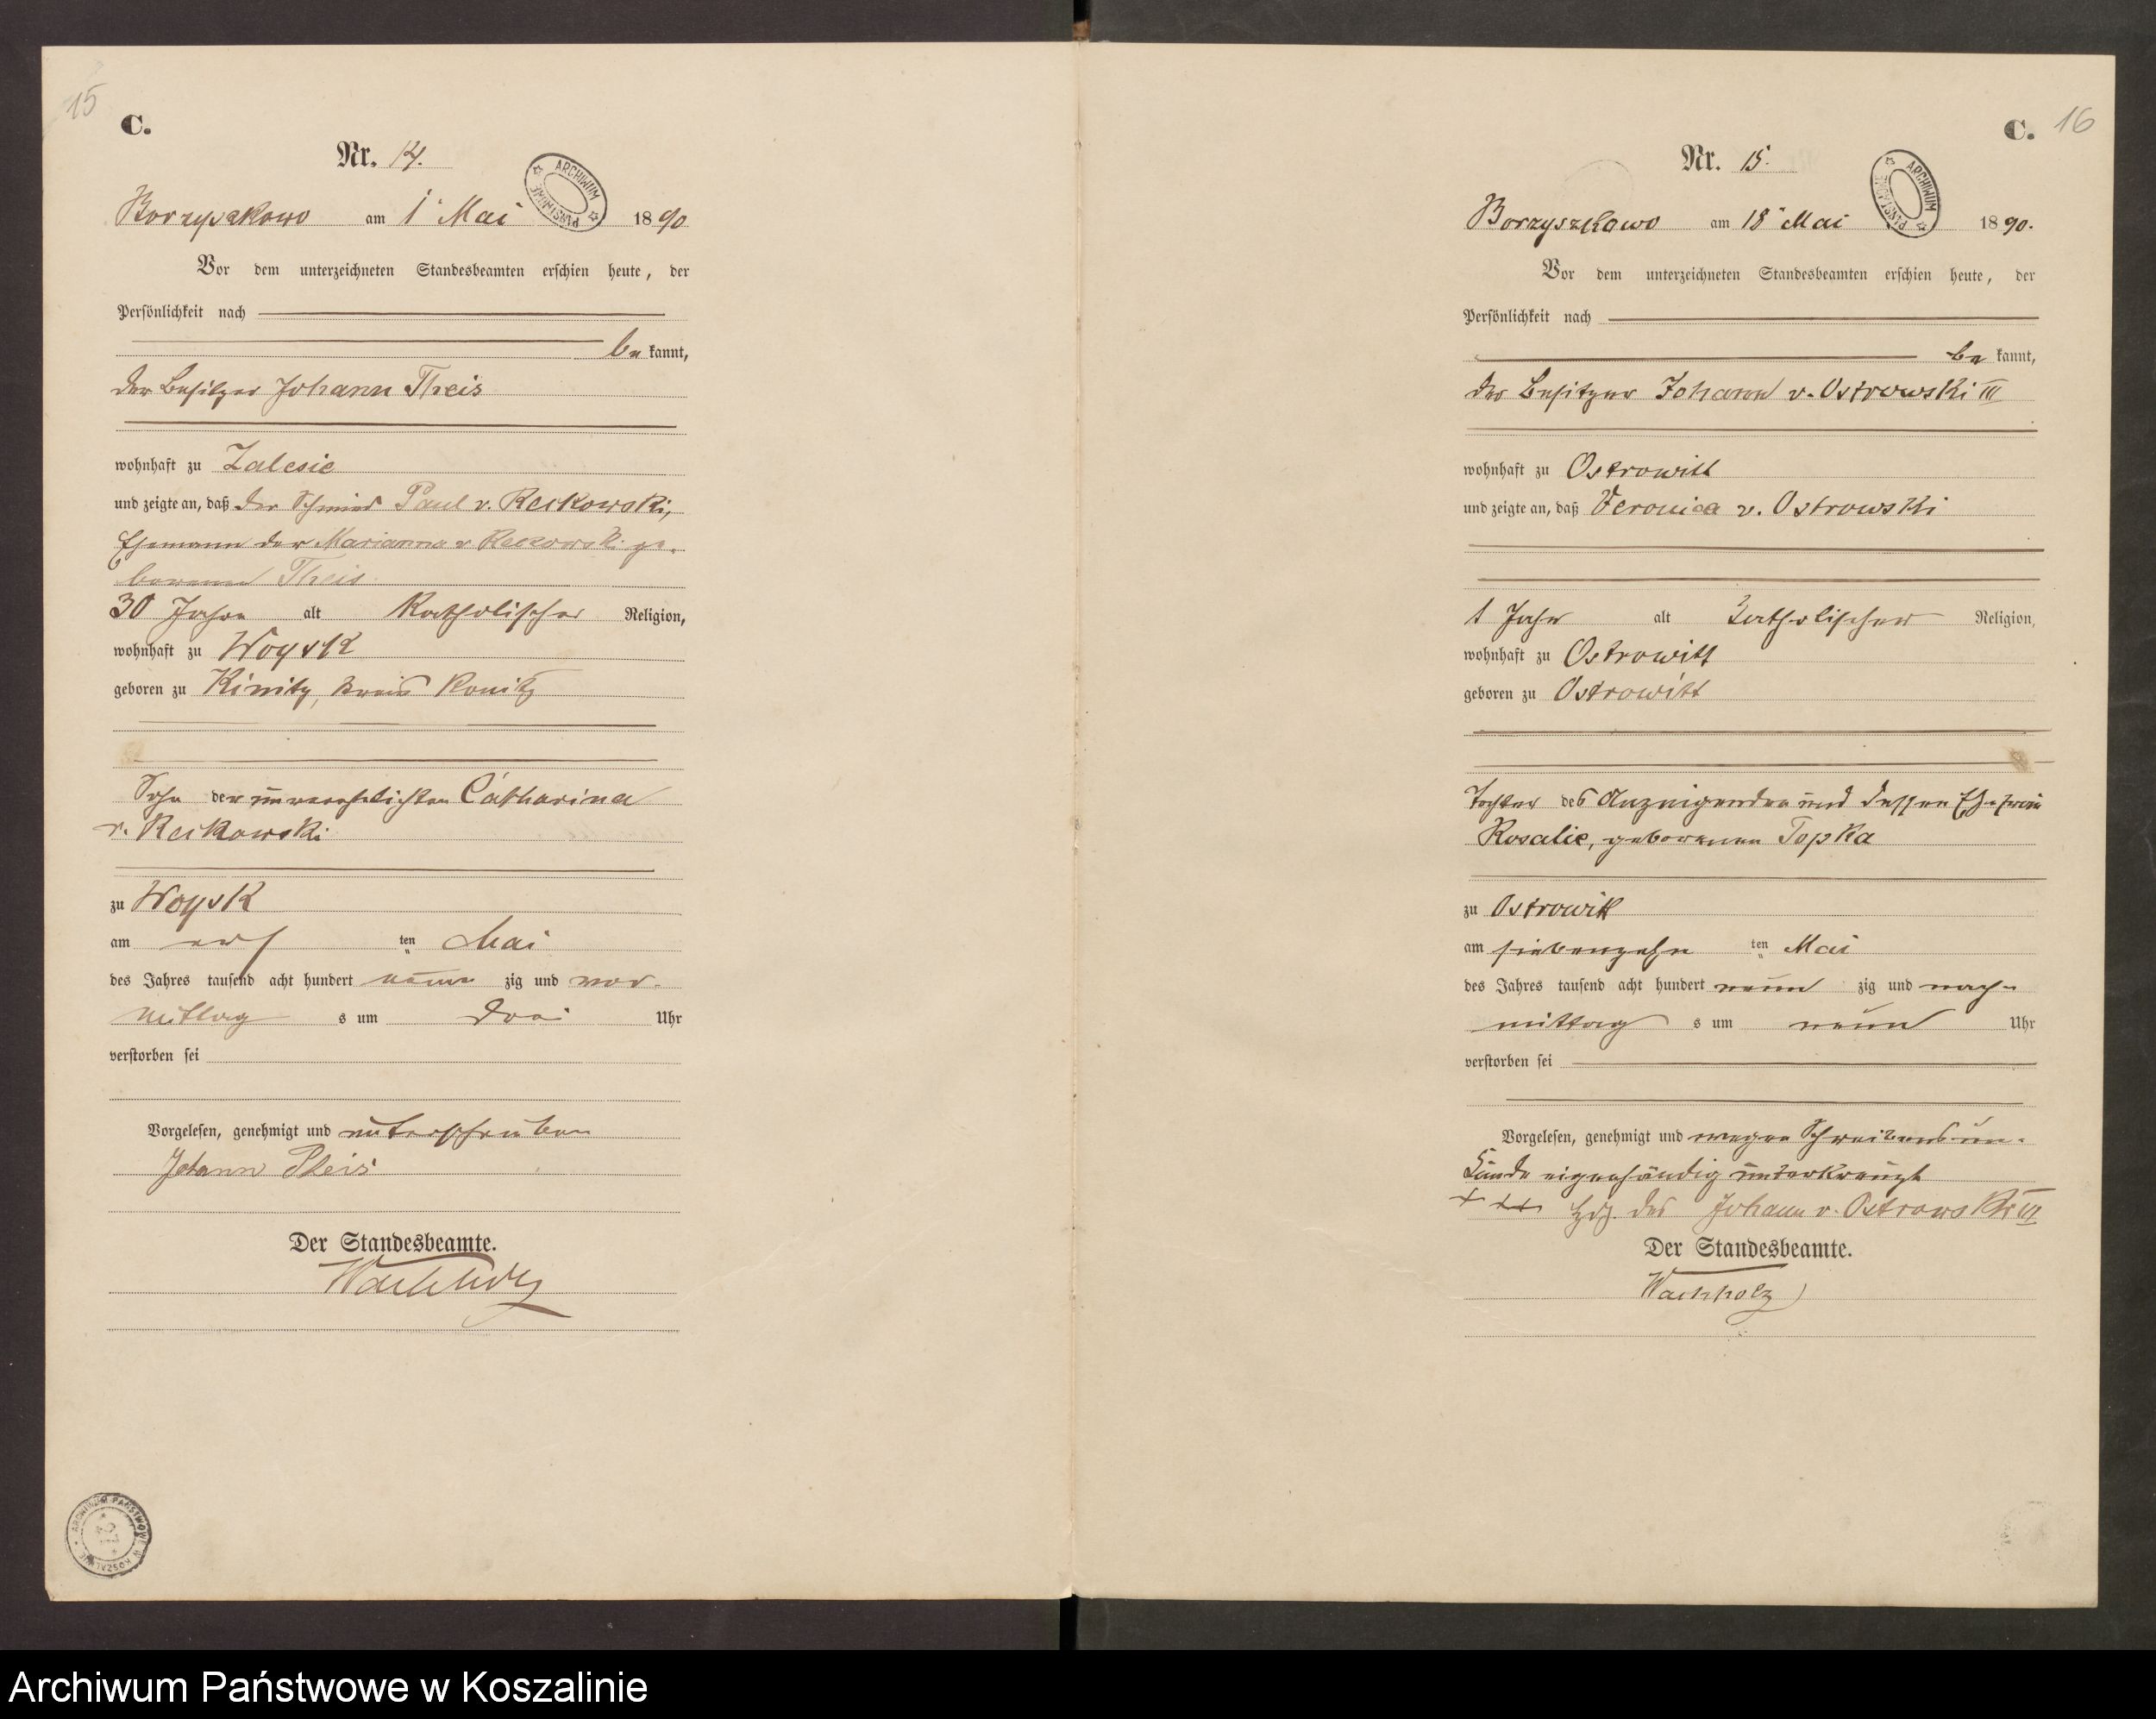 15
C.
Nr. 14.
ARCHIWUM PAŃSTWOWE
Borzyszkowo am 1ᵗ Mai 1890
Vor dem unterzeichneten Standesbeamten erschien heute, der
Persönlichkeit nach
be kannt,
der Besitzer Johann Theis
wohnhaft zu Zalesie
und zeigte an, daß der Schmied Paul v. Reikowski,
Ehemann der Marianna v Reikowski ge-
borenen Theis
30 Jahre alt Katholischer Religion,
wohnhaft zu Woysk
geboren zu Kinitz, Kreis Konitz
Sohn der unverehelichten Catharina
v. Reikowski
zu Woysk
am ten Mai
des Jahres tausend acht hundert neun zig und vor-
mittag s um drei Uhr
verstorben sei
Vorgelesen, genehmigt und unterschrieben
Johann Theis
Der Standesbeamte.
Wachholz
ARCHIWUM PAŃSTWOWE W KOSZALINIE
C. 16
Nr. 15.
ARCHIWUM PAŃSTWOWE
Borzyszkowo am 18ᵗ Mai 1890.
Vor dem unterzeichneten Standesbeamten erschien heute, der
Persönlichkeit nach
be kannt,
der Besitzer Johann v. Ostrowski III
wohnhaft zu Ostrowitt
und zeigte an, daß Veronica v. Ostrowski
1 Jahr alt katholischer Religion,
wohnhaft zu Ostrowitt
geboren zu Ostrowitt
Tochter des Anzeigenden und dessen Ehefrau
Rosalie, geborenen Topka
zu Ostrowitt
am siebenzehn ten Mai
des Jahres tausend acht hundert neun zig und nach-
mittag s um neun Uhr
verstorben sei
Vorgelesen, genehmigt und wegen Schreibensun-
kunde eigenhändig unterkreuzt
+ ++ Hdz. des Johann v. Ostrowski III
Der Standesbeamte.
Wachholz
Archiwum Państwowe w Koszalinie